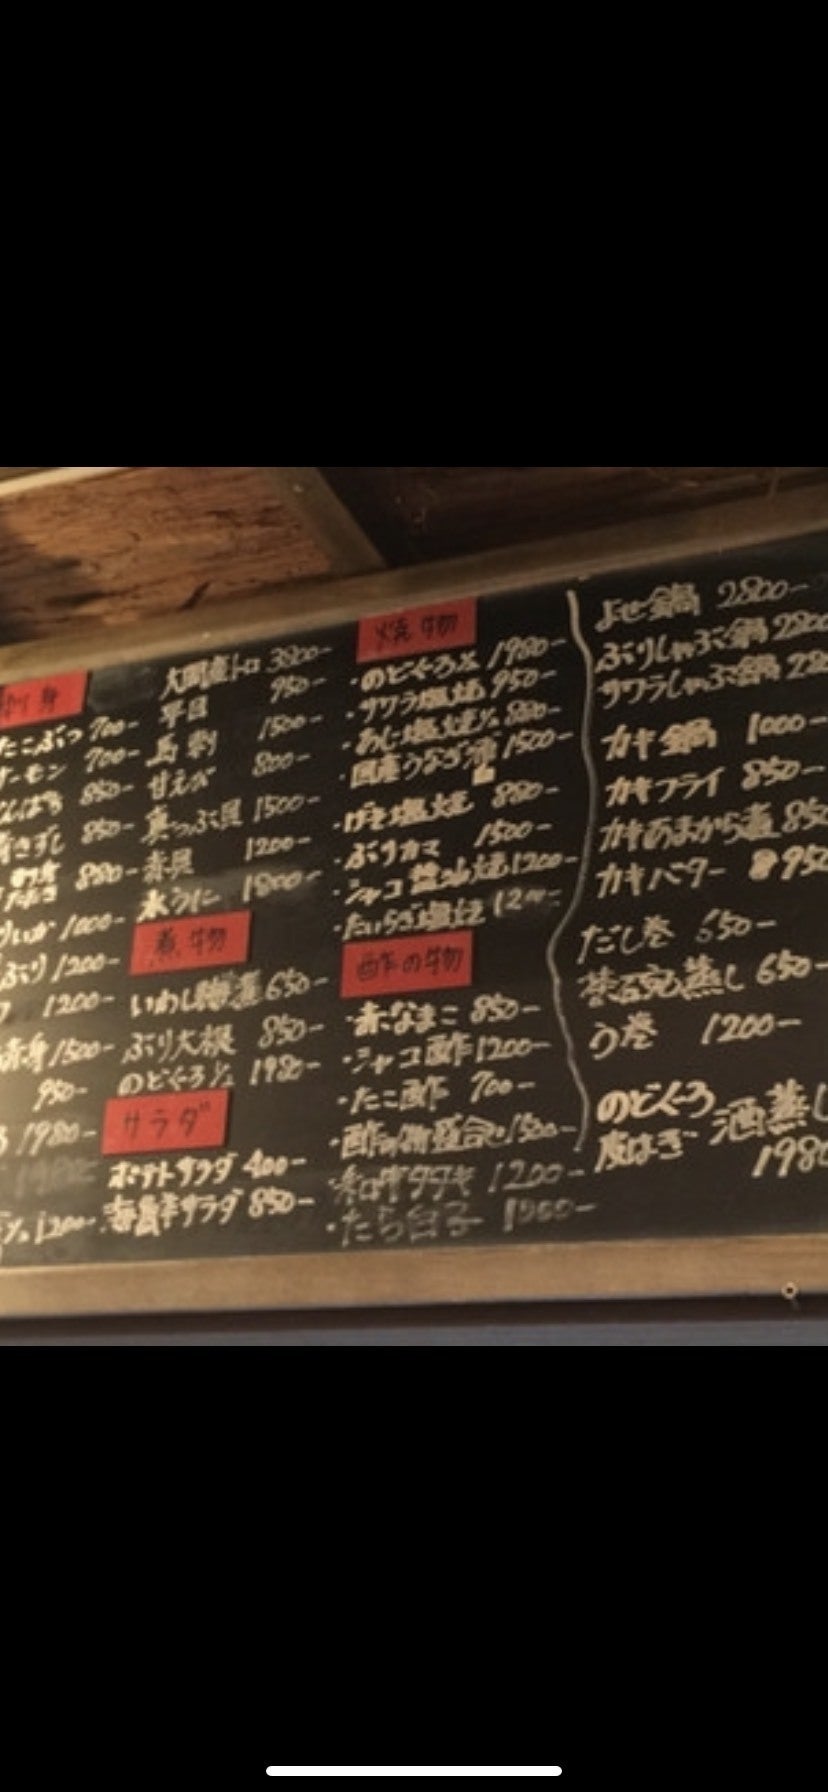 刺身
たこぶつ 700-
サーモン 700-
850-
850-
880-
いか 1000-
ぶり 1200-
1200-
赤身 1500-
950-
1980-
1200-
大間産トロ 3800-
平目 950-
馬刺 1500-
甘えび 800-
真つぶ貝 1500-
赤貝 1200-
水うに 1800-
煮物
いわし 煮 650-
ぶり大根 850-
のどぐろ½ 1980-
サラダ
ポテトサラダ 400-
海鮮サラダ 850-
焼物
・のどぐろ½ 1980-
・サワラ塩焼 950-
・あじ塩焼½ 880-
・国産うなぎ蒲 1500-
・げそ塩焼 880-
・ぶりカマ 1500-
・シャコ醤油焼 1200-
・たいらぎ塩焼
酢の物
・赤なまこ 850-
・シャコ酢 1200-
・たこ酢 700-
・酢の物盛合 1500-
タタキ 1200-
・たら白子
よせ鍋 2800-
ぶりしゃぶ鍋 2800
サワラしゃぶ鍋
カキ鍋 1000-
カキフライ 850-
カキあまから煮 850
カキバター 950
だし巻 650-
茶碗蒸し 650-
う巻 1200-
のどぐろ
皮はぎ 酒蒸し
1980